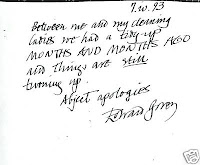 7.IV.93
Between me and my cleaning
ladies we had a tidy-up
MONTHS AND MONTHS AGO
and things are still
turning up.
Abject apologies
Edward Gorey